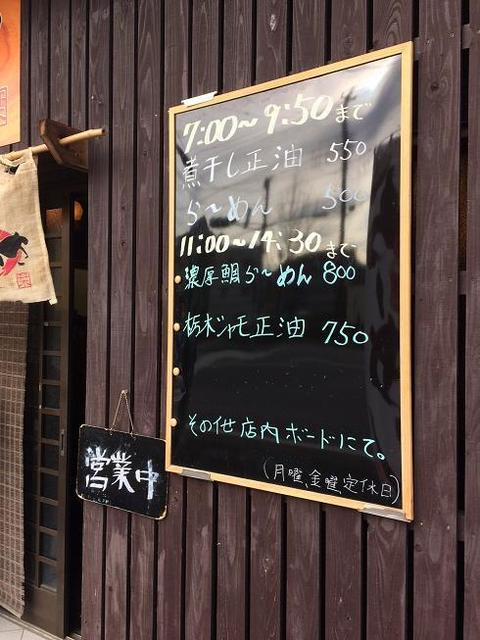 7:00〜9:50まで
煮干し正油 550
らーめん 500
11:00〜14:30まで
濃厚鯛らーめん 800
栃木シャモ正油 750
その他店内ボードにて。
(月曜、金曜定休日)
営業中